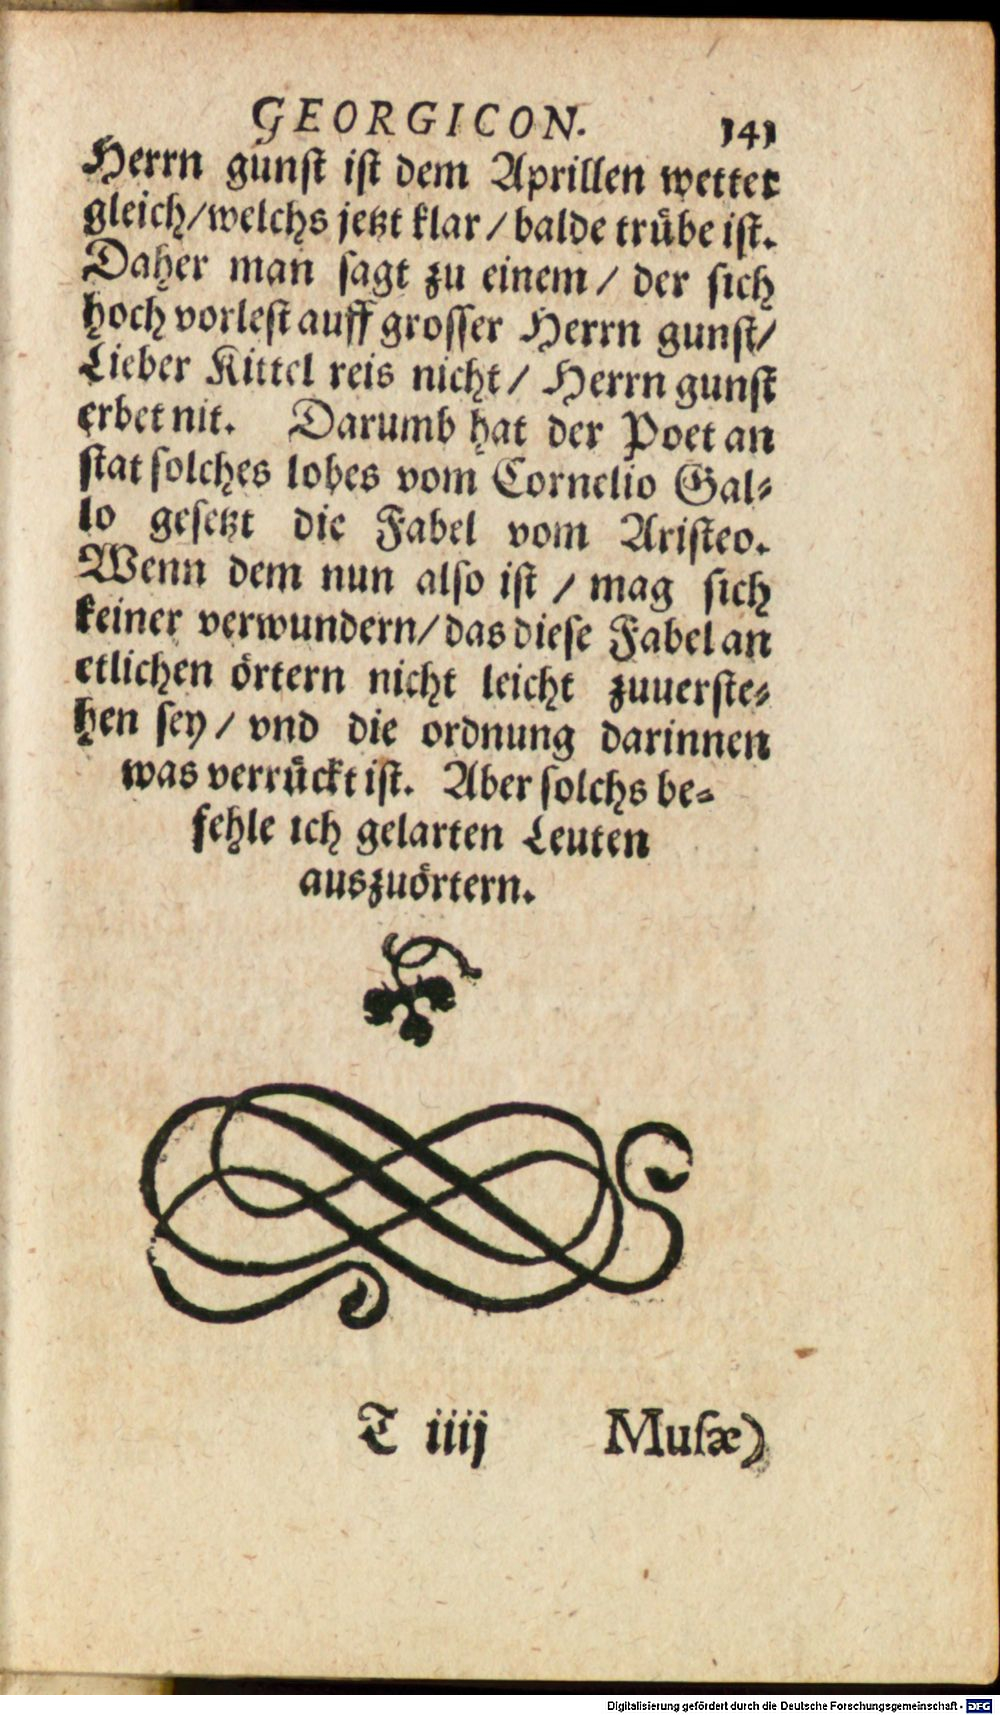 GEORGICON. 141
Herrn gunſt iſt dem Aprillen wetter
gleich/welchs jetzt klar / balde truͤbe iſt.
Daher man ſagt zu einem / der ſich
hoch vorleſt auff groſſer Herrn gunſt/
Lieber Kittel reis nicht / Herrn gunſt
erbet nit. Darumb hat der Poet an
ſtat ſolches lobes vom Cornelio Gal⸗
lo geſetzt die Fabel vom Ariſteo.
Wenn dem nun alſo iſt / mag ſich
keiner verwundern/ das dieſe Fabel an
etlichen oͤrtern nicht leicht zuuerſte⸗
hen ſey / vnd die ordnung darinnen
was verruͤckt iſt. Aber ſolchs be⸗
fehle ich gelarten Leuten
auszuoͤrtern.
T iiij Muſæ)
Digitalisierung gefördert durch die Deutsche Forschungsgemeinschaft - DFG